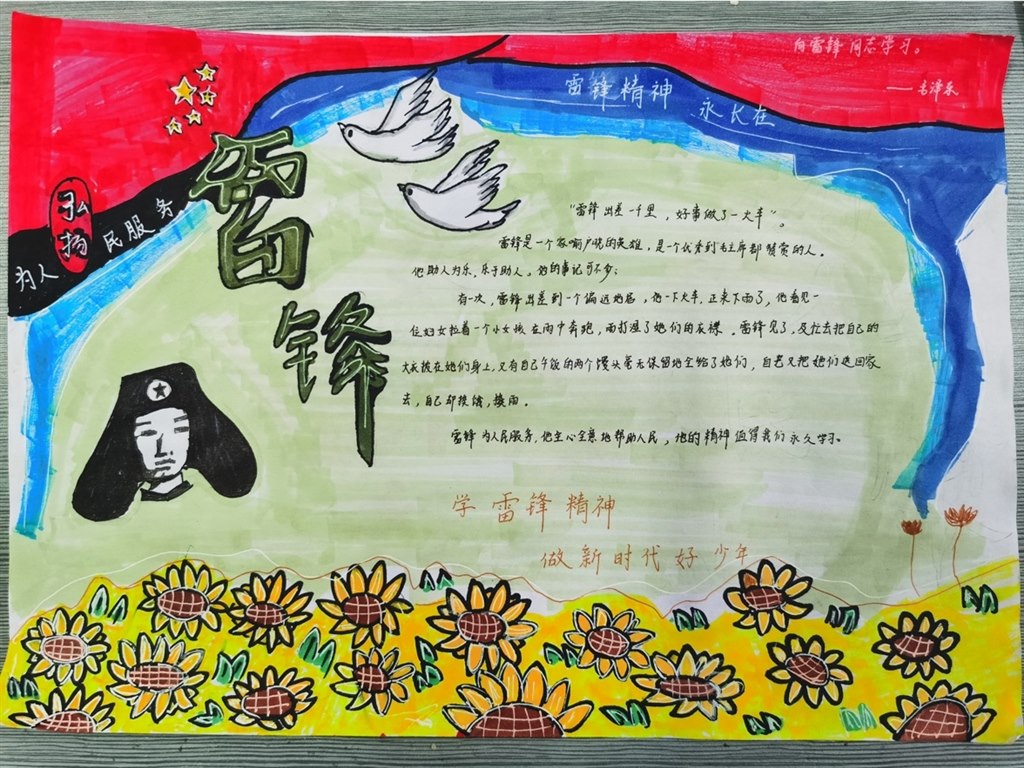 向雷锋同志学习。
——毛泽东
雷锋精神 永长在
弘扬
为人民服务
雷锋
“雷锋出差一千里，好事做了一火车”。
雷锋是一个家喻户晓的英雄，是一个优秀到毛主席都赞赏的人。
他助人为乐、乐于助人。他的事记可不少；
有一次，雷锋出差到一个偏远地名，他一下火车，正来下雨了，他看见一
位妇女拉着一个小女孩在雨中奔跑，雨打湿了她们的衣襟。雷锋见了，急忙去把自己的
大衣披在她们身上，又有自己午饭的两个馒头毫无保留地全给了她们，自己又把她们送回家
去，自己却挨饿，挨雨。
雷锋为人民服务，他全心全意地帮助人民，他的精神值得我们永久学习。
学雷锋精神
做新时代好少年